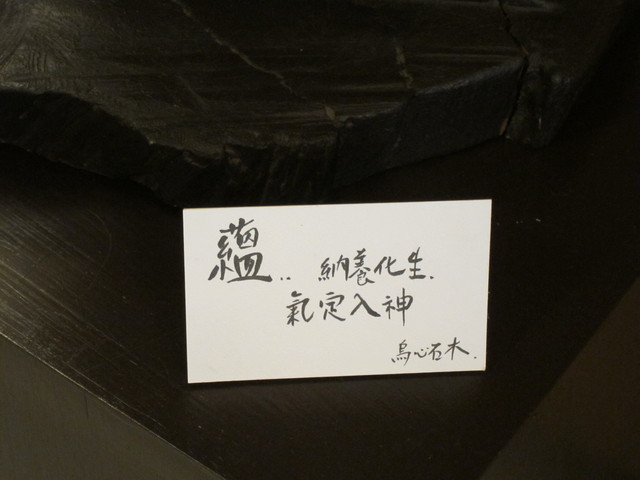 蘊.. 納養化生.
氣定入神
烏心石木.